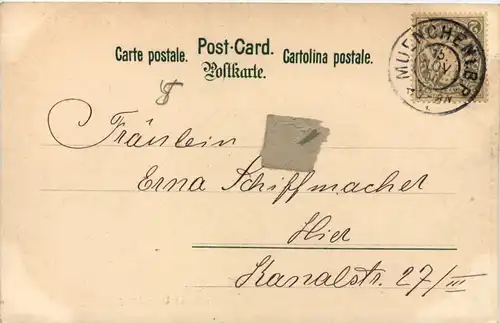 Carte postale. Post-Card. Cartolina postale.
Postkarte.
MUENCHEN I B.P.
Fräulein
Erna Schiffmacher
Hier
Kanalstr. 27/III